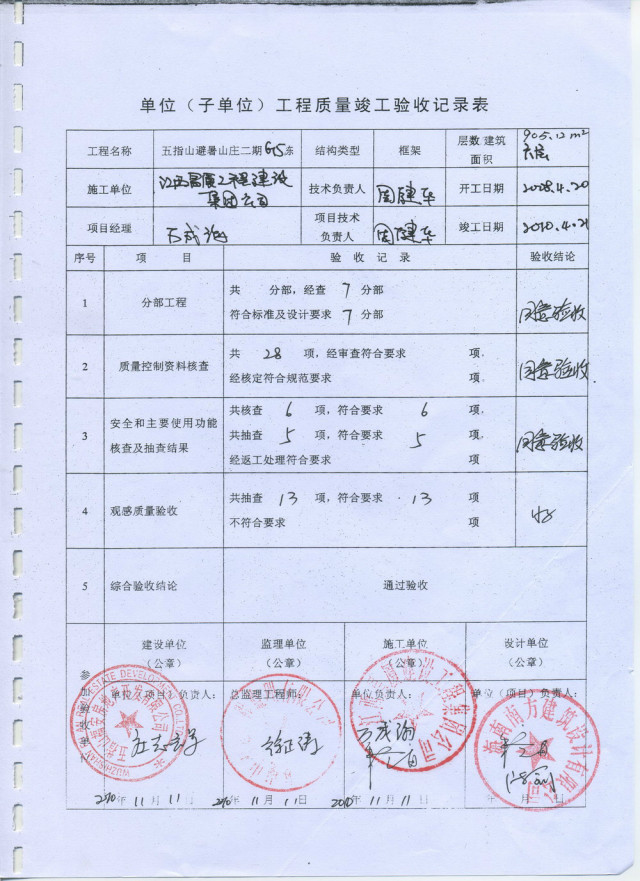 单位（子单位）工程质量竣工验收记录表
工程名称 五指山避暑山庄二期 栋 结构类型 框架 层数 建筑面积 905.12 m²
施工单位 集团公司 技术负责人 周建华 开工日期 2008.4.20
项目经理 万成海 项目技术负责人 周建华 竣工日期 2010.4.21
序号 项 目 验 收 记 录 验收结论
1 分部工程 共 分部，经查 7 分部
符合标准及设计要求 7 分部 同意验收
2 质量控制资料核查 共 28 项，经审查符合要求 项，
经核定符合规范要求 项 同意验收
3 安全和主要使用功能
核查及抽查结果 共核查 6 项，符合要求 6 项，
共抽查 5 项，符合要求 5 项，
经返工处理符合要求 项 同意验收
4 观感质量验收 共抽查 13 项，符合要求 13 项
不符合要求 项 好
5 综合验收结论 通过验收
建设单位
（公章） 监理单位
（公章） 施工单位
（公章） 设计单位
（公章）
单位（项目）负责人： 总监理工程师： 单位负责人： 单位（项目）负责人：
海南南方建筑设计有限公司
2010年 11月 11日 2010年 11月 11日 2010年 11月 11日 年 月 日